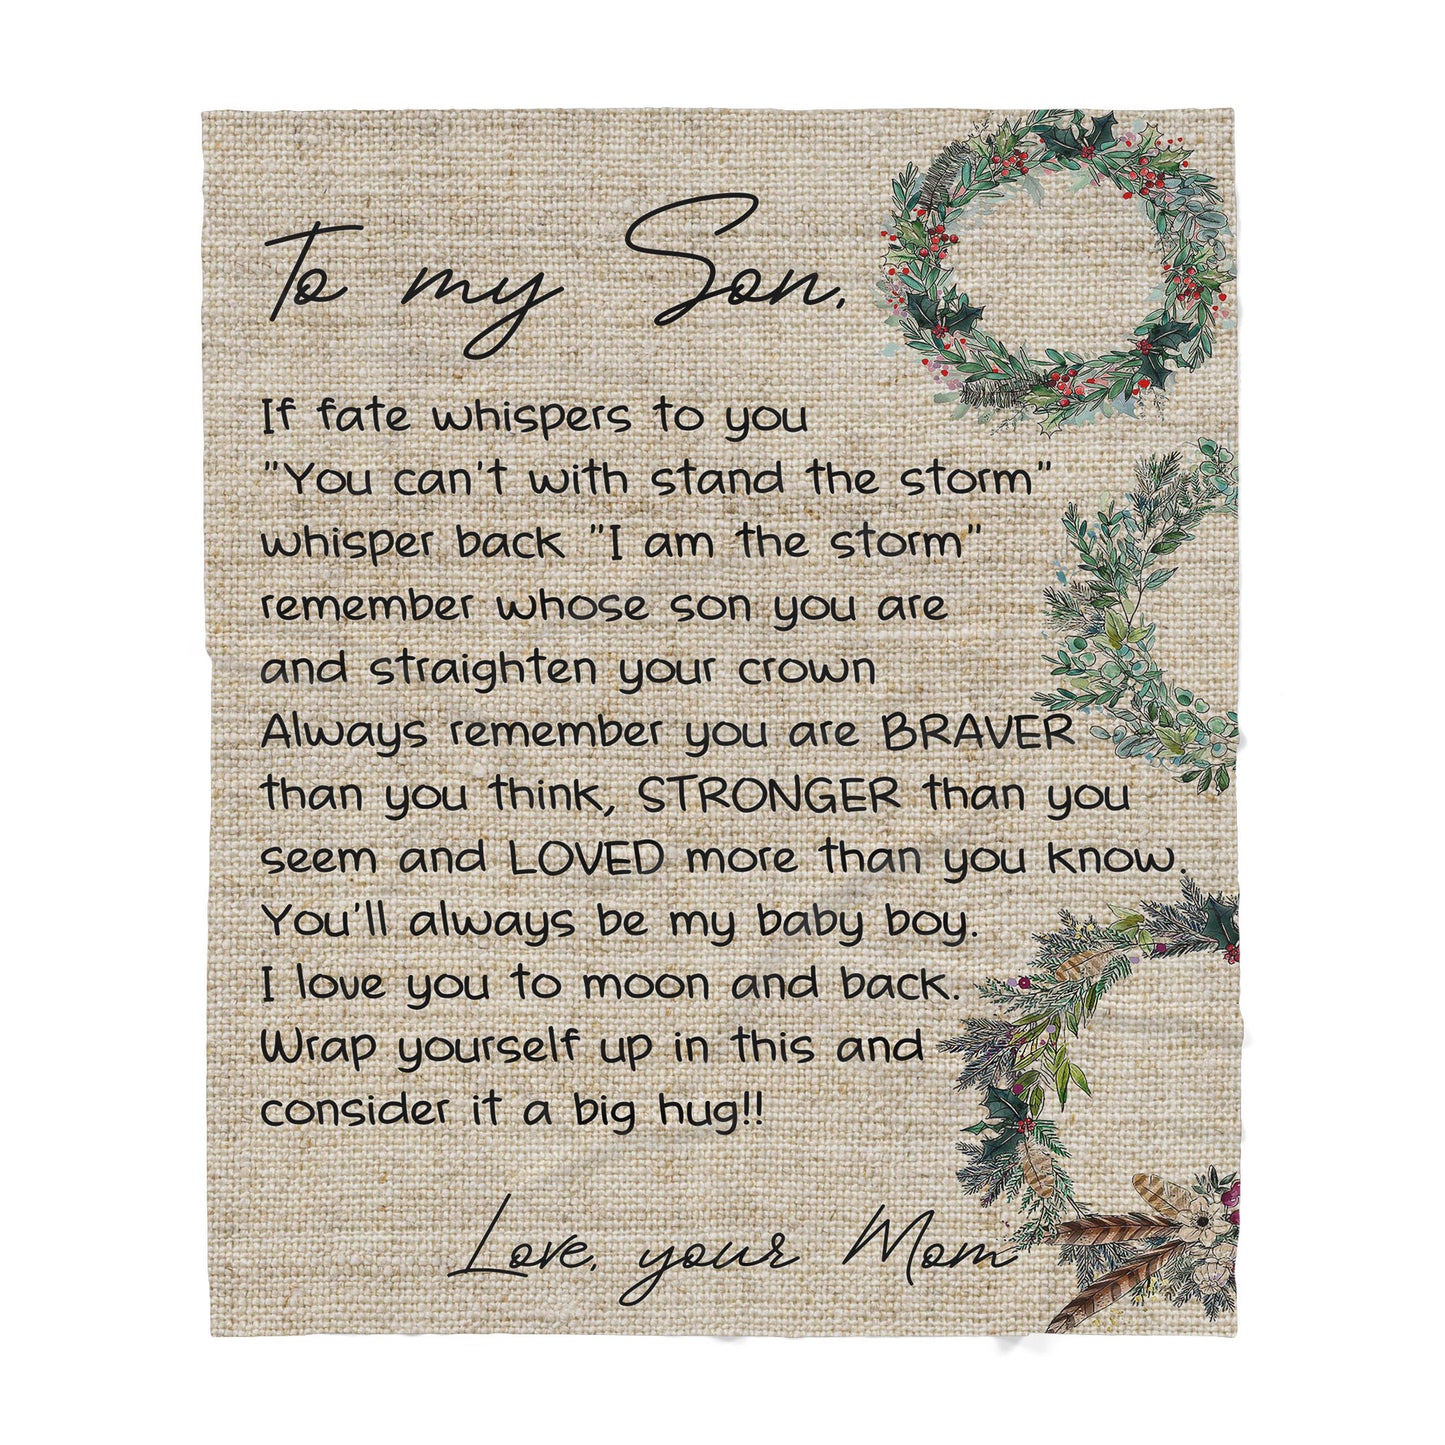 To my Son,
If fate whispers to you
"You can't with stand the storm"
whisper back "I am the storm"
remember whose son you are
and straighten your crown
Always remember you are BRAVER
than you think, STRONGER than you
seem and LOVED more than you know.
You'll always be my baby boy.
I love you to moon and back.
Wrap yourself up in this and
consider it a big hug!!
Love, your Mom